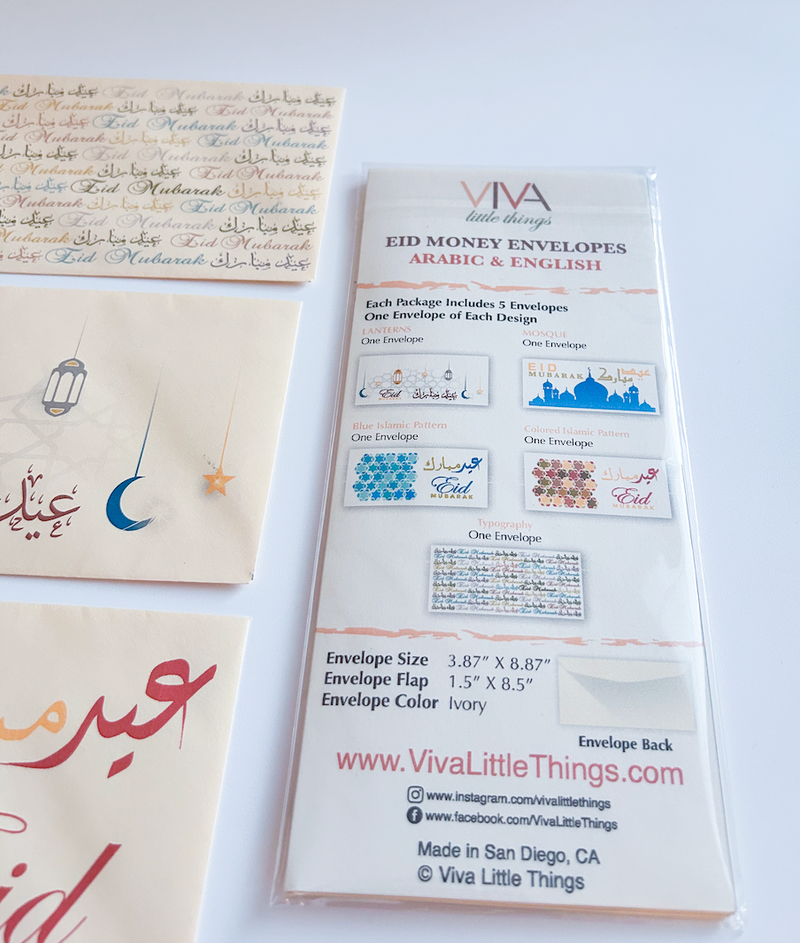 Eid Mubarak عيد مبارك Eid Mubarak عيد مبارك
Eid Mubarak عيد مبارك Eid Mubarak
عيد مبارك Eid Mubarak عيد مبارك
عيد مبارك Eid Mubarak
عيد مبارك Eid Mubarak عيد مبارك
Eid Mubarak عيد مبارك Eid Mubarak
عيد مبارك Eid Mubarak عيد مبارك
Mubarak عيد مبارك Eid Mubarak
عيد مبارك Eid Mubarak عيد مبارك
عيد مبارك Eid Mubarak
Eid Mubarak عيد مبارك
عيد
عيد
VIVA
little things
EID MONEY ENVELOPES
ARABIC & ENGLISH
Each Package Includes 5 Envelopes
One Envelope of Each Design
LANTERNS
One Envelope
Eid
عيد مبارك
MOSQUE
One Envelope
EID
MUBARAK
عيد مبارك
Blue Islamic Pattern
One Envelope
عيد مبارك
Eid
MUBARAK
Colored Islamic Pattern
One Envelope
عيد مبارك
Eid
MUBARAK
Typography
One Envelope
Envelope Size 3.87” X 8.87”
Envelope Flap 1.5” X 8.5”
Envelope Color Ivory
Envelope Back
www.VivaLittleThings.com
www.instagram.com/vivalittlethings
www.facebook.com/VivaLittleThings
Made in San Diego, CA
© Viva Little Things